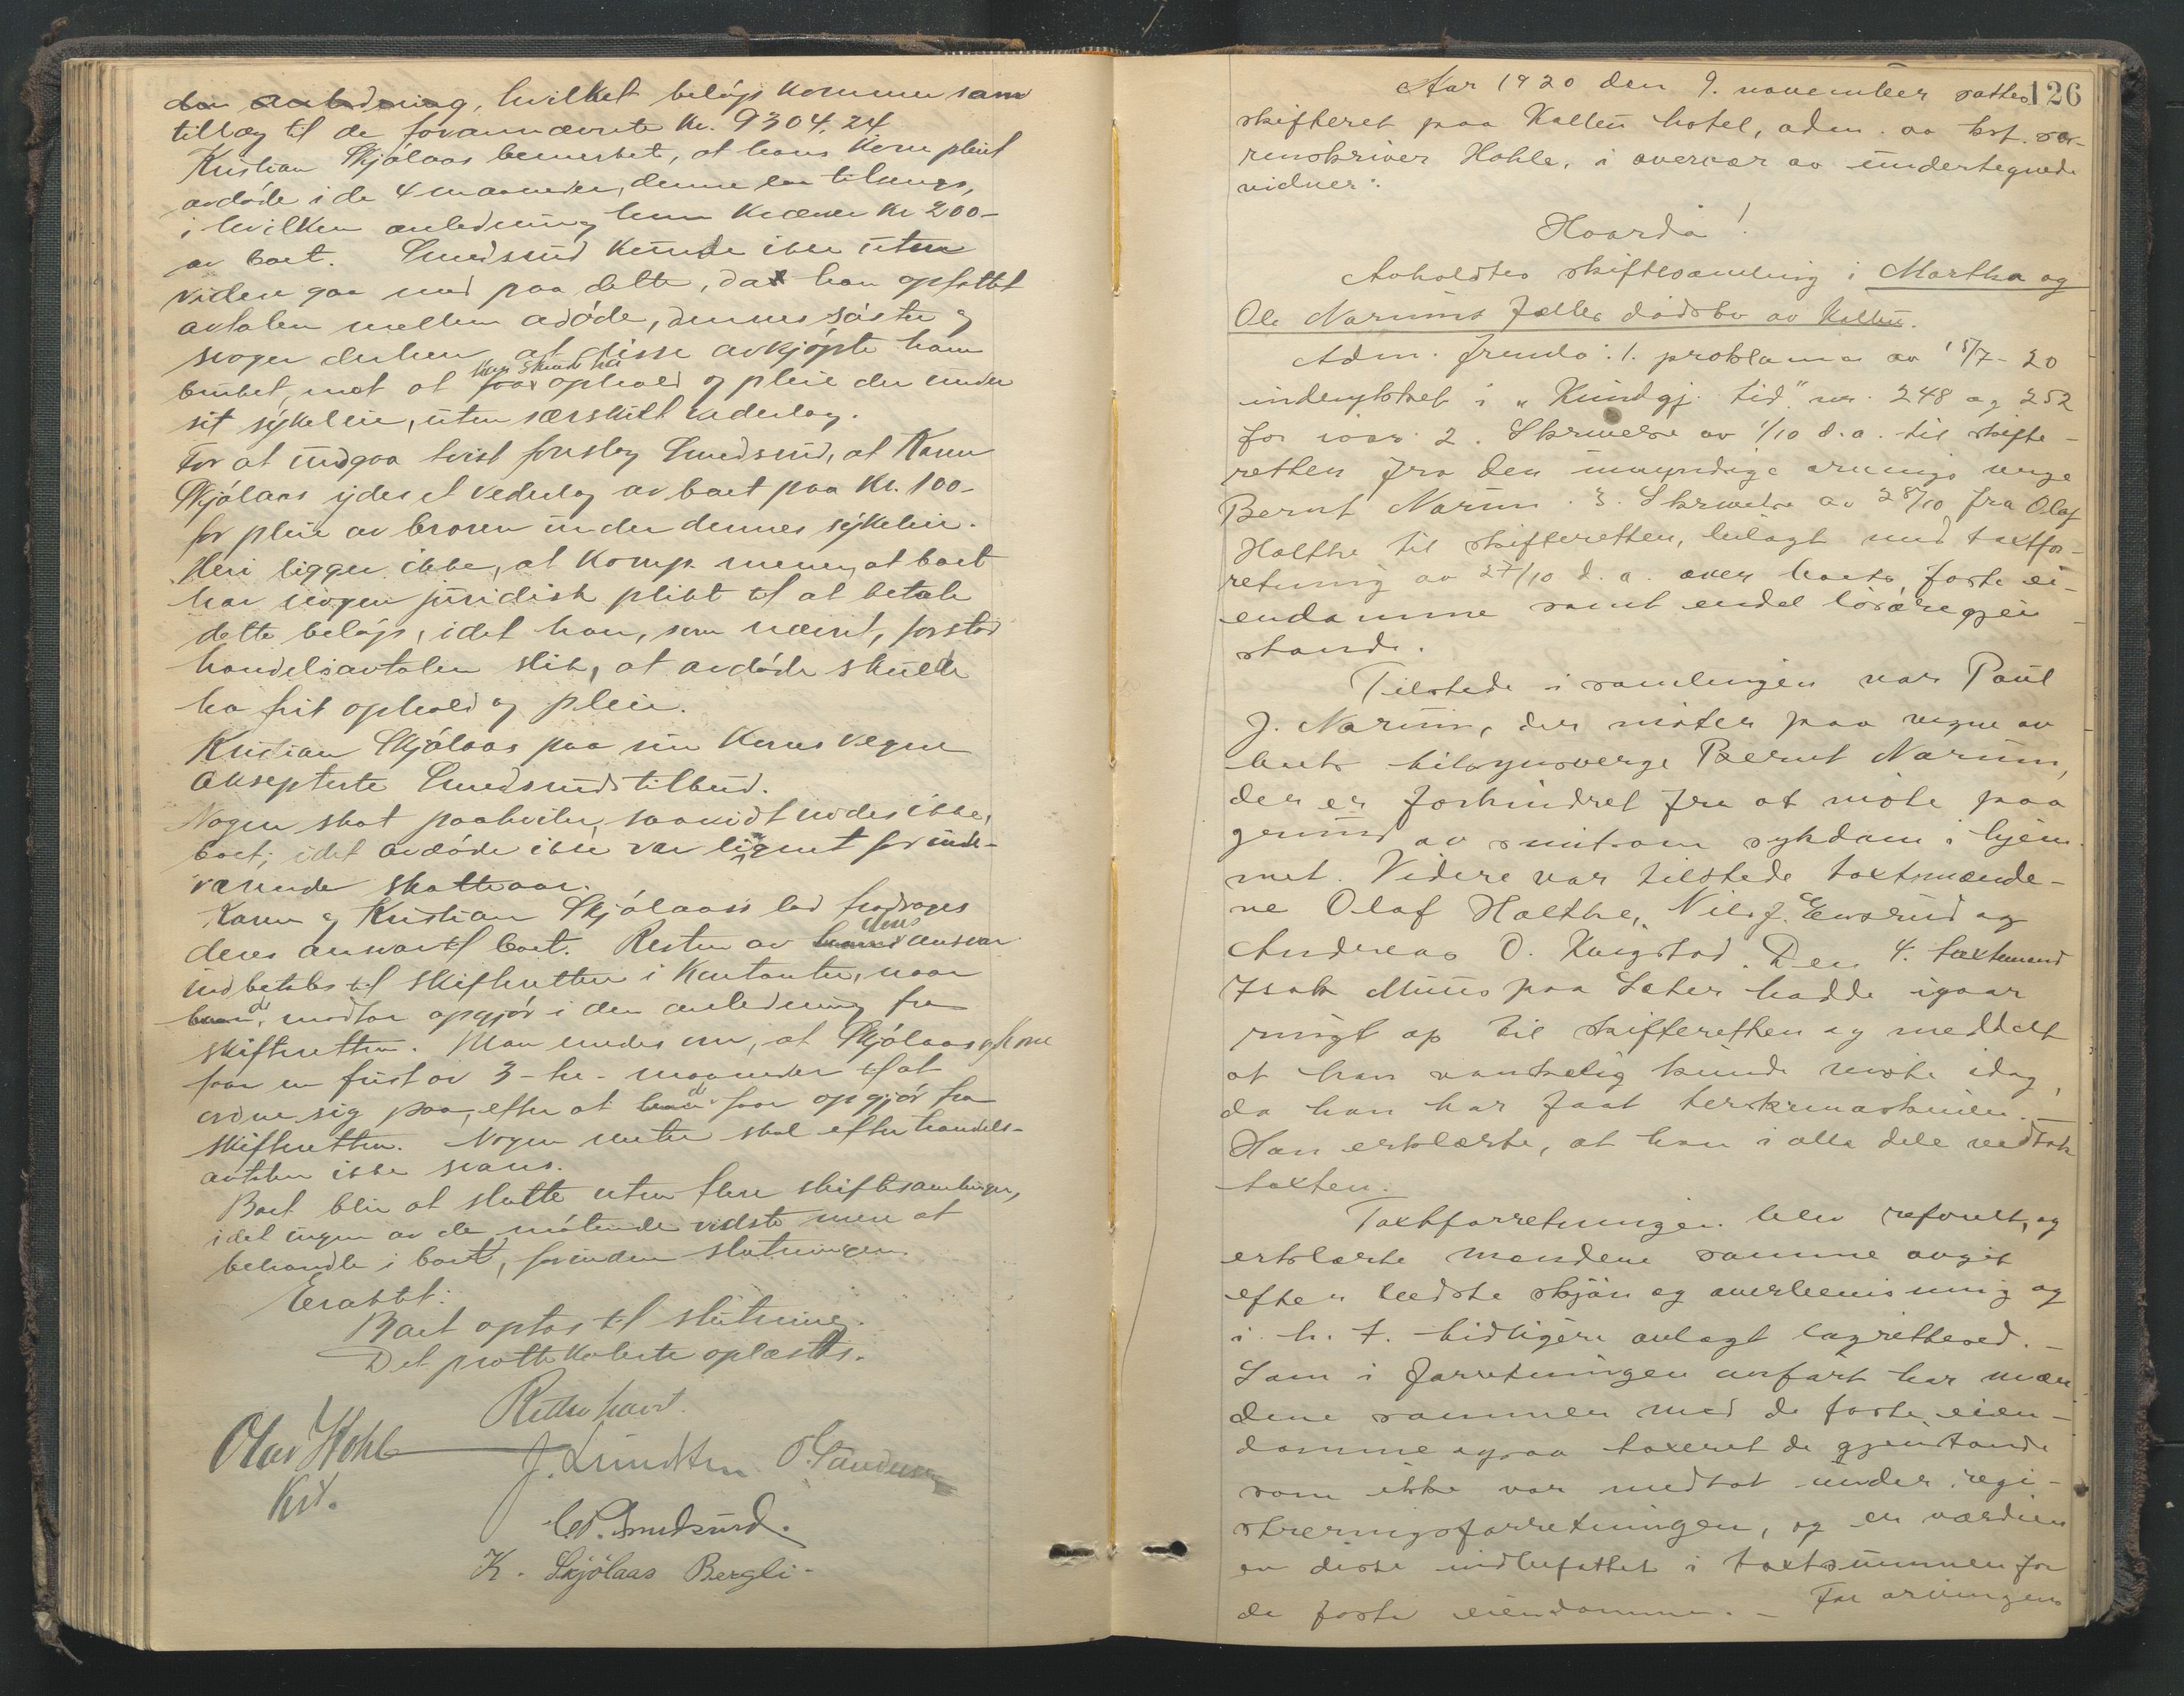 den anledning, hvilket beløp kommer som
tillæg til de forannævnte kr. 9304,24.
Kristian Skjólaas bemerket, at hans kone pleiet
avdóde i de 4 maaneder, denne laa tilsengs,
i hvilken anledning hun kræver kr 200-
av boet. Smedsrud kunde ikke uten
videre gaa med paa dette, da han opfattet
avtalen mellem avdóde, dennes sóster og
svoger derhen, at disse avkjópte ham
bruket, mot at han skulde ha ophold og pleie der under
sit sykeleie, uten særskilt vederlag.
For at undgaa tvist foreslog Smedsrud, at Karen
Skjólaas ydes et vederlag av boet paa kr. 100-
for pleie av broren under dennes sykeleie.
Heri ligger ikke, at komp. mener, at boet
har nogen juridisk plikt til at betale
dette beløp, idet han, som nævnt, forstod
handelsavtalen slik, at avdóde skulde
ha frit ophold og pleie.
Kristian Skjólaas paa sin kones vegne
aksepterte Smedsruds tilbud.
Nogen skat paahviler, saavidt vides ikke,
boet, idet avdóde ikke var lignet for inde-
værende skatteaar.
Karen og Kristian Skjólaas lod fradrages
deres ansvar til boet. Resten av deres ansvar
indbetales til skifteretten i kontanter, naar
de mottar opgjór i den anledning fra
skifteretten. Man enedes om, at Skjólaas og kone
faar en frist av 3-tre- maaneder til at
ordne sig paa, efter at de faar opgjór fra
skifteretten. Nogen renter skal efter handels-
avtalen ikke svares.
Boet blir at slutte uten flere skiftesamlinger,
idet ingen av de mótende vidste mere at
behandle i boet, forinden slutningen.
Eraktet:
Boet optas til slutning.
Det protokolerte oplæstes.
Retten hævet.
Olav Hohle
kst.
J. Lundsten O. Sandersen
C. P. Smedsrud.
K. Skjólaas Bergli-

126
Aar 1920 den 9. november sattes
skifteret paa Kolbu hotel, adm. av kst. so-
renskriver Hohle, i overvær av undertegnede
vidner:
Hvorda!
Avholdtes skiftesamling i Martha og
Ole Narums fælles dódsbo av Kolbu.
Adm. fremla: 1. proklama av 15/7-20
indrykket i „Kundgj. tid" nr. 248 og 252
for iaar. 2. Skrivelse av 1/10 d.a. til skifte-
retten fra den umyndige arvings verge
Bernt Narum. 3. Skrivelse av 28/10 fra Olaf
Holthe til skifteretten, bilagt med takstfor-
retning av 27/10 d.a. over boets faste ei-
endomme samt endel lösöregjen-
stande.
Tilstede i samlingen var Paul
J. Narum, der móter paa vegne av
boets tilsynsverge Bernt Narum,
der er forhindret fra at móte paa
grund av smitsom sykdom i hjem-
met. Videre var tilstede takstmænde-
ne Olaf Holthe, Nils J. Ensrud og
Andreas O. Kongstad. Den 4. takstmand
Isak Muus paa Sater hadde igaar
ringt op til skifteretten og meddelt
at han vanskelig kunde móte idag,
da han har faat terskemaskinen. -
Han erklærte, at han i alle dele vedtok
taksten.
Takstforretningen blev referert, og
erklærte mændene samme avgit
efter bedste skjón og overbevisning og
i h. t. tidligere avlagt lagretteed. -
Som i forretningen anfórt har mæn-
dene sammen med de faste eien-
domme ogsaa taxeret de gjenstande
som ikke var medtat under regi-
streringsforretningen, og er værdien
av disse indbefattet i takstsummen for
de faste eiendomme. - For arvingens